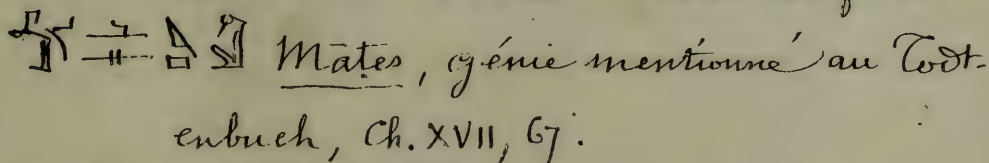 Mātes, génie mentionné au Todt-
enbuch, Ch. XVII, 67.